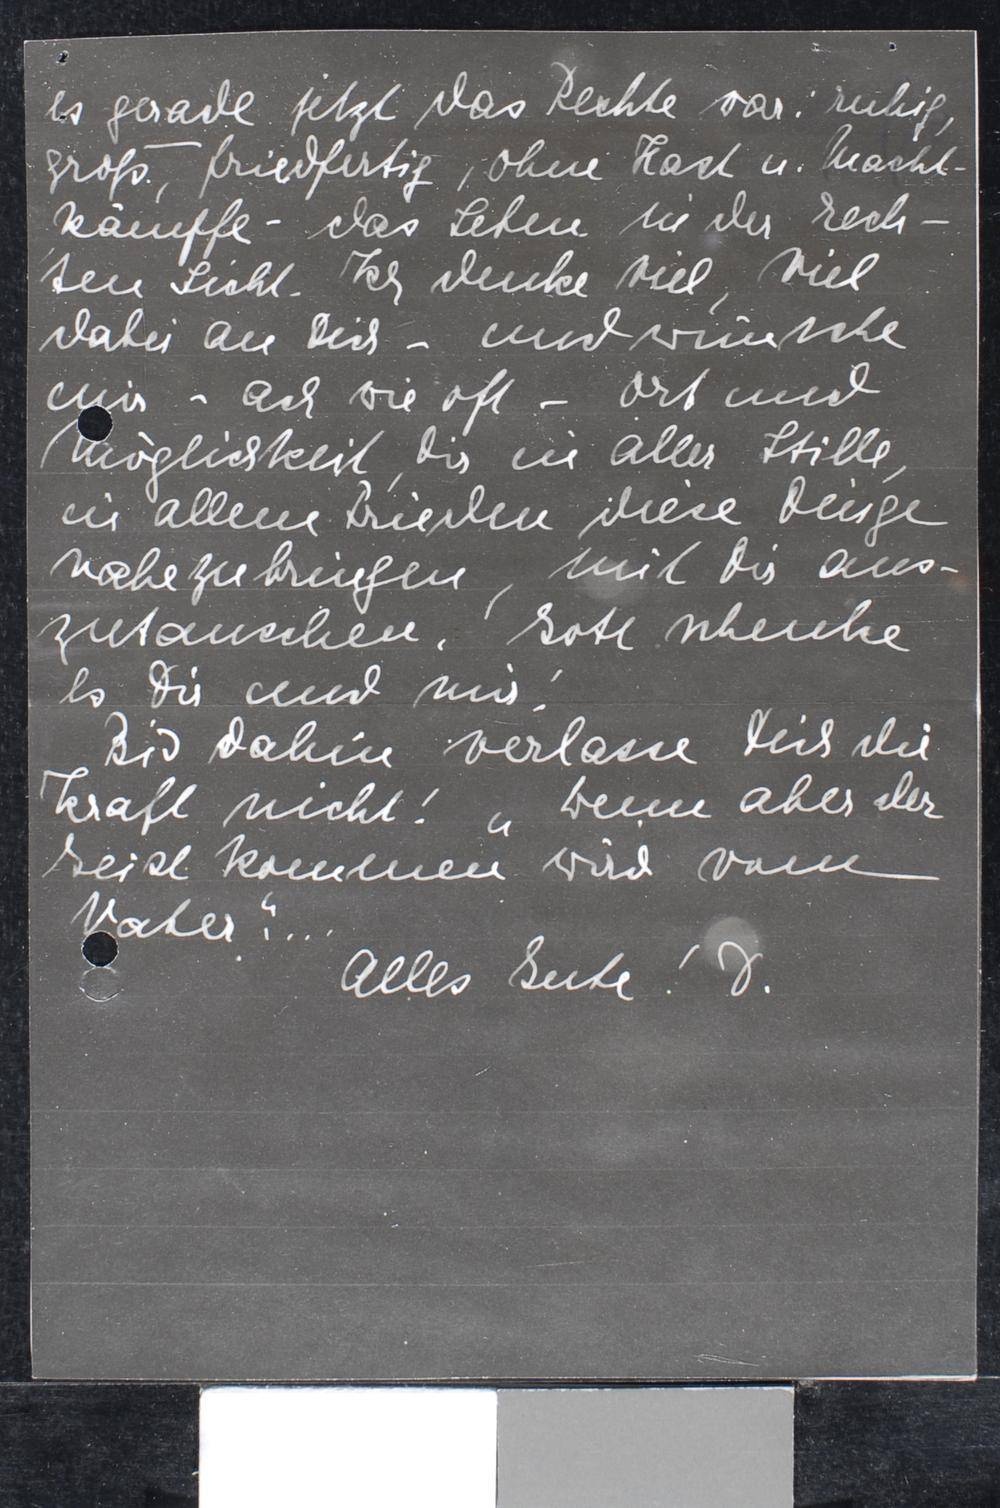 es gerade jetzt das Rechte war: ruhig,
groß, friedfertig, ohne Hast u. Macht-
kämpfe - das Leben in der rech-
ten Sicht. Ich denke viel, viel
dabei an Dich - und wünsche
mir - ach wie oft - Ort und
Möglichkeit, Dir in aller Stille,
in allem Frieden diese Dinge
nahezubringen, mit Dir aus-
zutauschen. Gott schenke
es Dir und mir!
Bis dahin verlasse Dich die
Kraft nicht! „Wenn aber der
Geist kommen wird vom
Vater“...
Alles Gute! D.